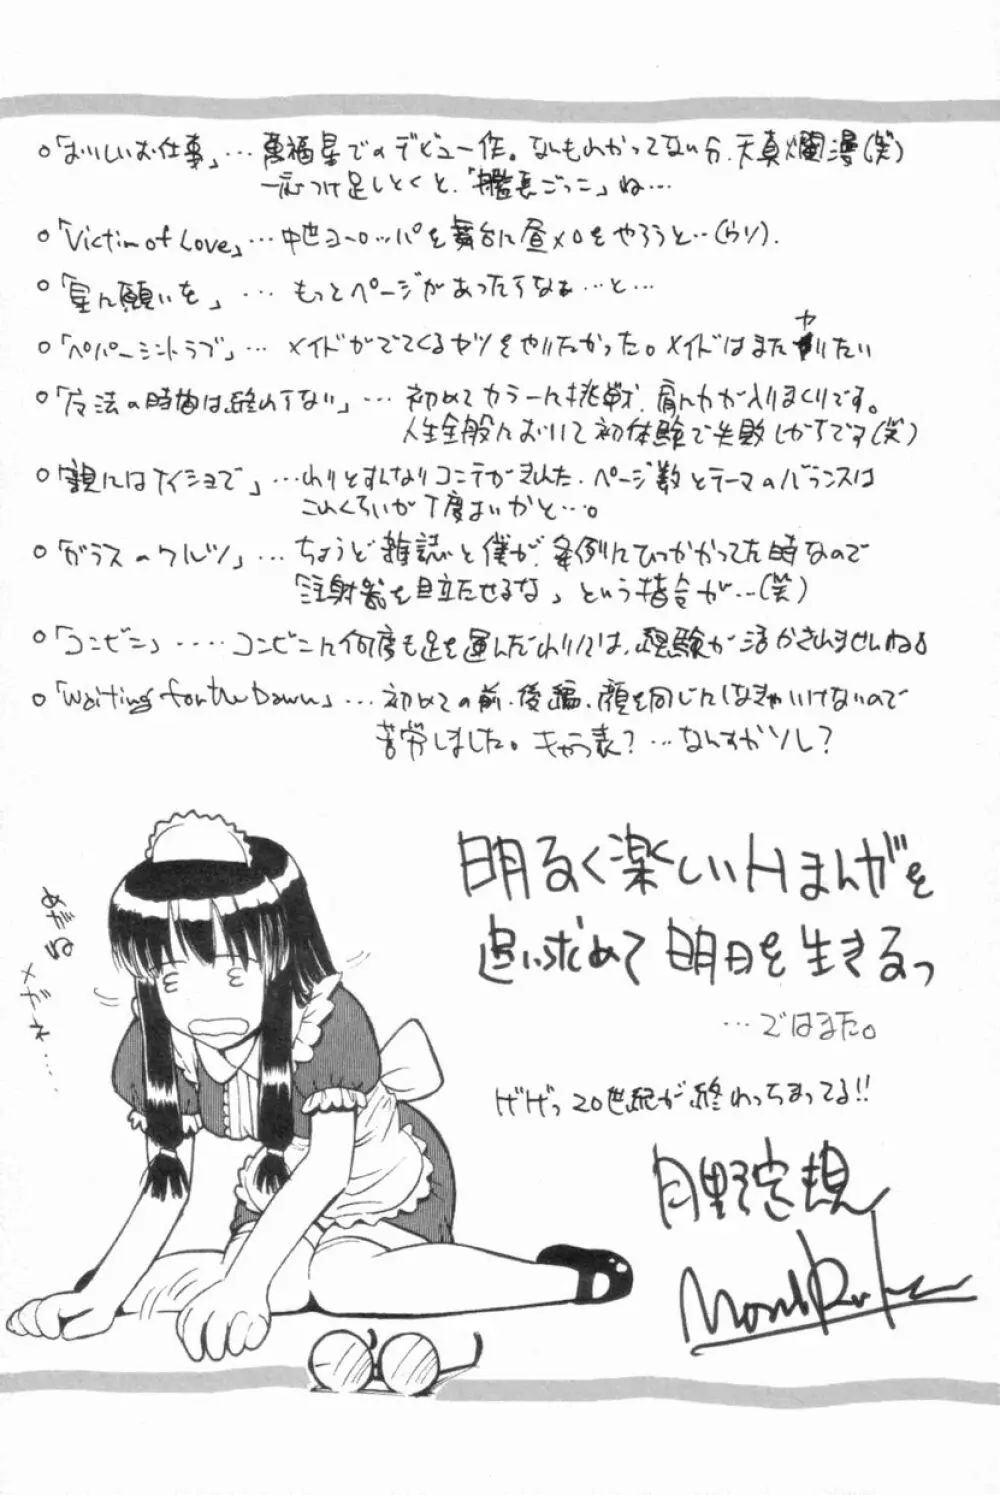 ○「おいしいお仕事」…萬福星でのデビュー作。なんもわかってない分、天真爛漫(笑)
一応つけ足しとくと、「艦長ごっこ」ね…
○「Victim of Love」…中世ヨーロッパを舞台に昼メロをやろうと…(ウソ).
○「星に願いを」…もっとページがあったらなぁ…と…
○「ペパーミントラブ」…メイドがでてくるヤツをやりたかった。メイドはまたヤりたい
○「魔法の時間は終わらない」…初めてカラーに挑戦、肩に力が入りまくりです。
人生全般において初体験で失敗しがちです(笑)
○「親にはナイショで」…わりとすんなりコンテがきれた。ページ数とテーマのバランスは
これくらいが丁度よいかと…。
○「ガラスのワルツ」…ちょうど雑誌と僕が、条例にひっかかってた時なので
「注射器を目立たせるな」という指令が…(笑)
○「コンビニ」……コンビニに何度も足を運んだわりには、経験が活かされませんね。
○「Waiting for the Dawn」…初めての前・後編、顔を同じにしなきゃいけないので
苦労しました。キャラ表?…なんすかソレ?
明るく楽しいHまんがを
追い求めて明日を生きるっ
…ではまた。
げげっ20世紀が終わっちまってる!!
月野定規
めがね
メガネ……